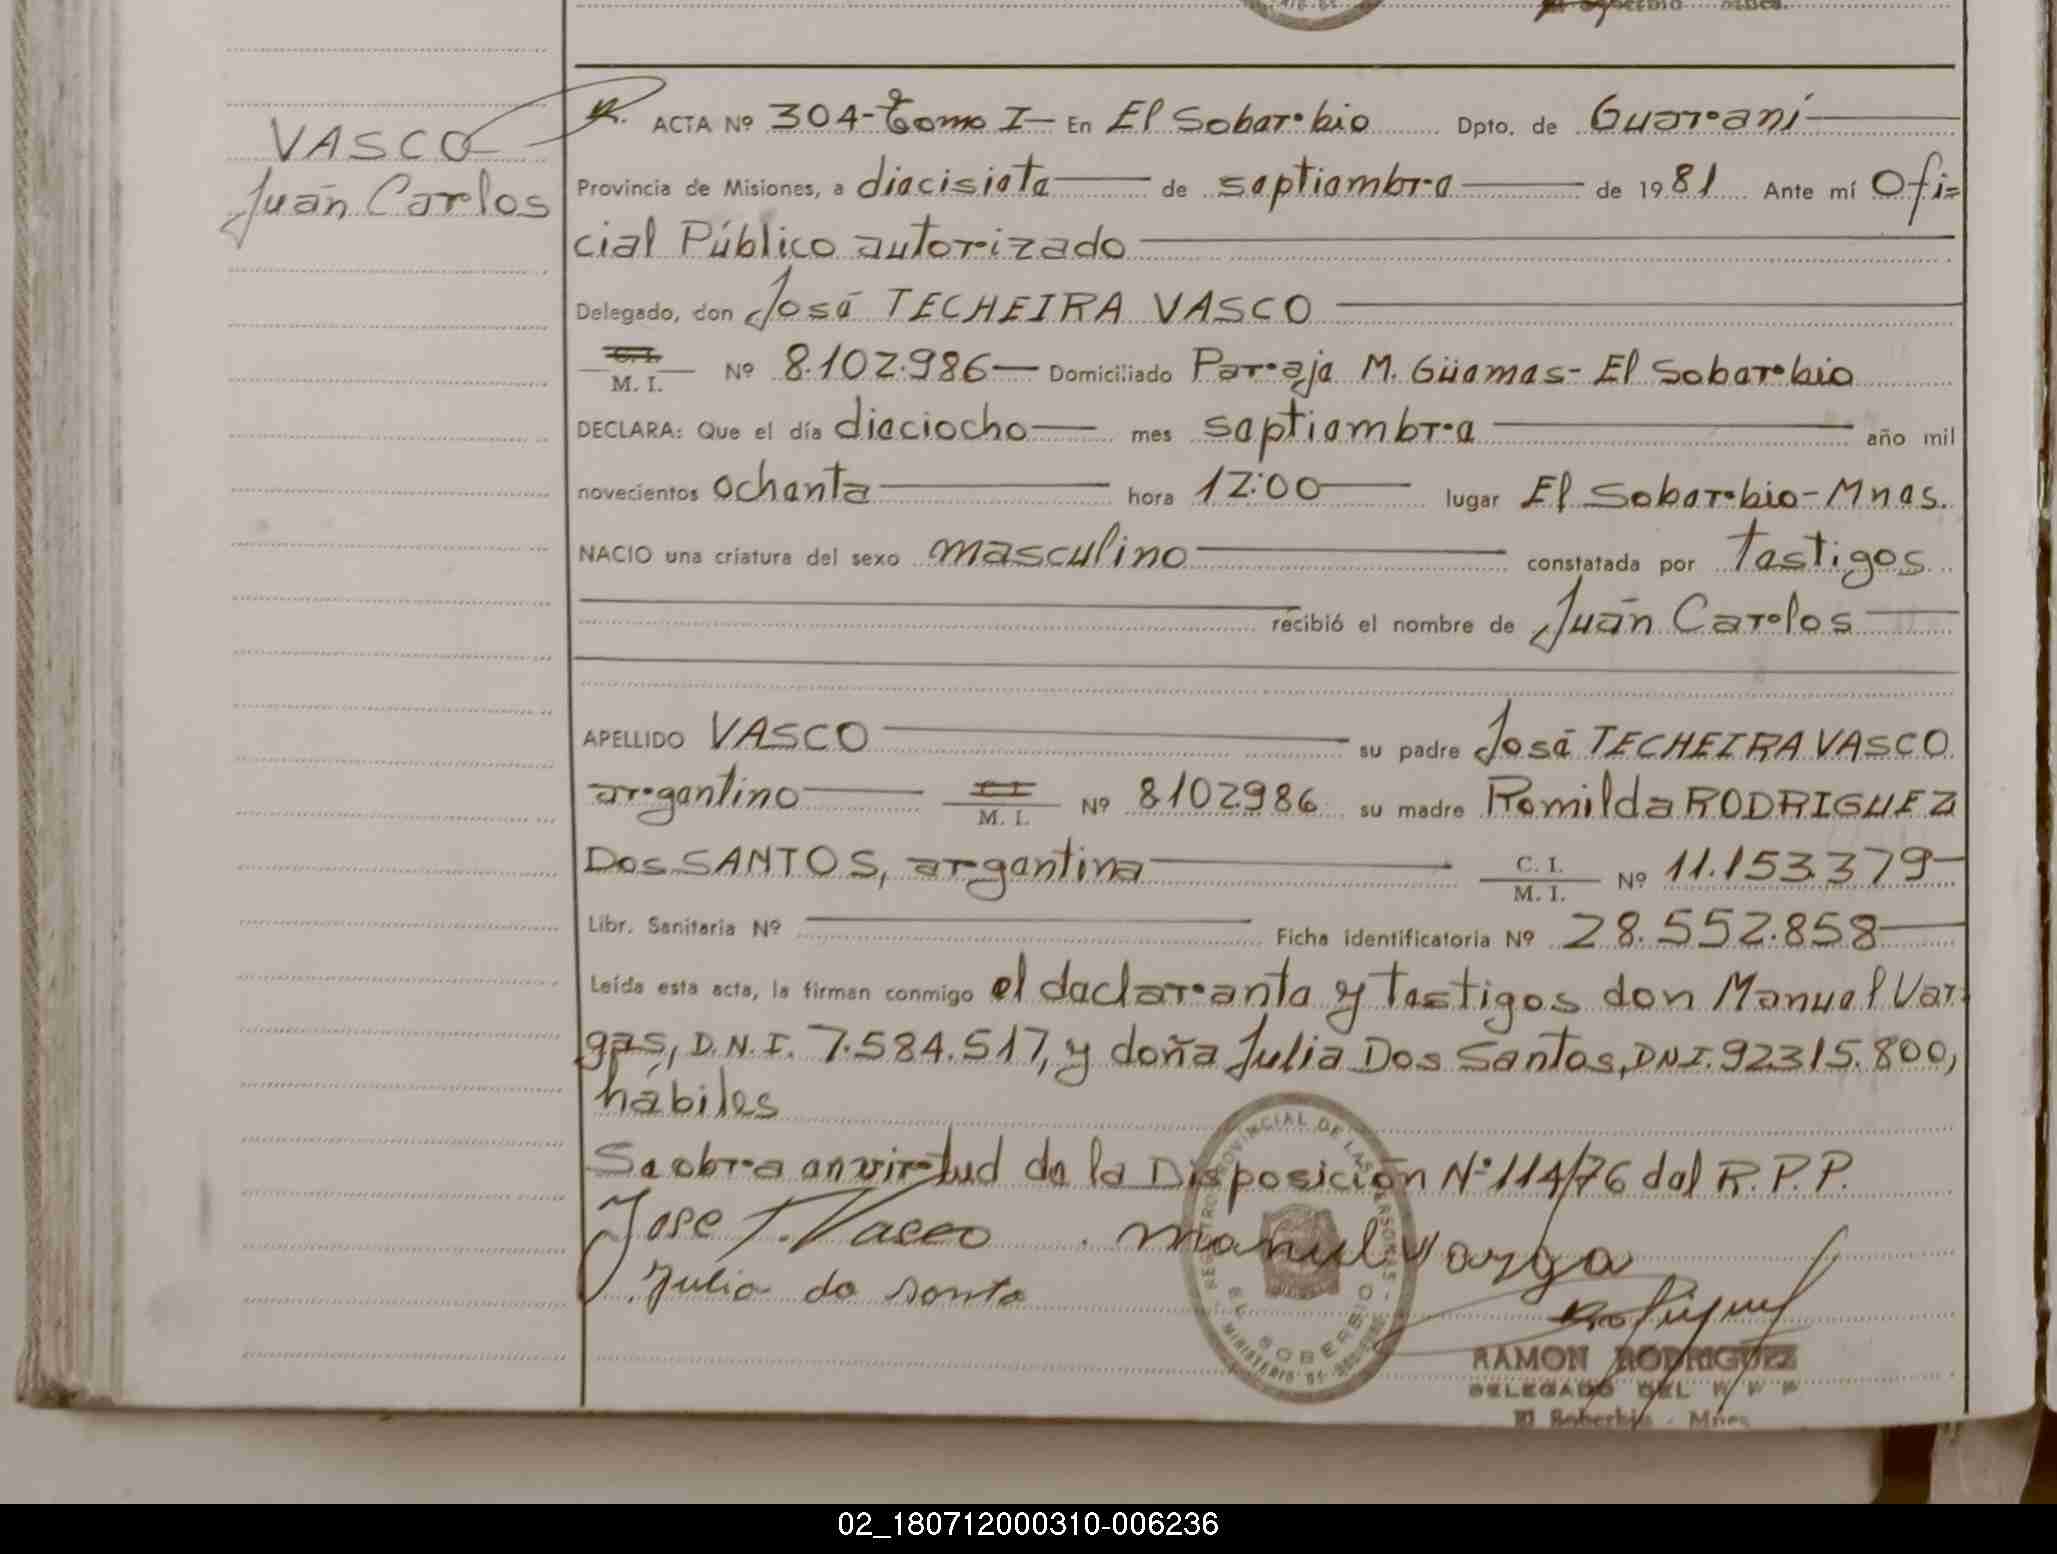 VASCO
Juán Carlos
ACTA Nº 304-Tomo I- En El Soberbio Dpto. de Guaraní
Provincia de Misiones, a diecisiete de septiembre de 1981 Ante mí Ofi=
cial Público autorizado
Delegado, don José TECHEIRA VASCO
C. I.
M. I. Nº 8.102.986 Domiciliado Paraje M. Güemes- El Soberbio
DECLARA: Que el día dieciocho mes septiembre año mil
novecientos ochenta hora 12:00 lugar El Soberbio-Mnes.
NACIO una criatura del sexo masculino constatada por testigos
recibió el nombre de Juán Carlos
APELLIDO VASCO su padre José TECHEIRA VASCO
argentino C I M. I. Nº 8102986 su madre Romilda RODRIGUEZ
Dos SANTOS, argentina C. I. M. I. Nº 11.153.379
Libr. Sanitaria Nº Ficha identificatoria Nº 28.552.858
Leída esta acta, la firman conmigo el declarante y testigos don Manuel Var
gas, D.N.I. 7.584.517, y doña Julia Dos Santos, DNI. 92315.800,
hábiles
Se obra en virtud de la Disposición Nº 114/76 del R.P.P.
Jose T. Vasco Manuel Varga
Julia do santo
REGISTRO PROVINCIAL DE LAS PERSONAS
EL SOBERBIO
RAMON RODRIGUEZ
DELEGADO DEL
El Soberbio - Mnes.
02_180712000310-006236